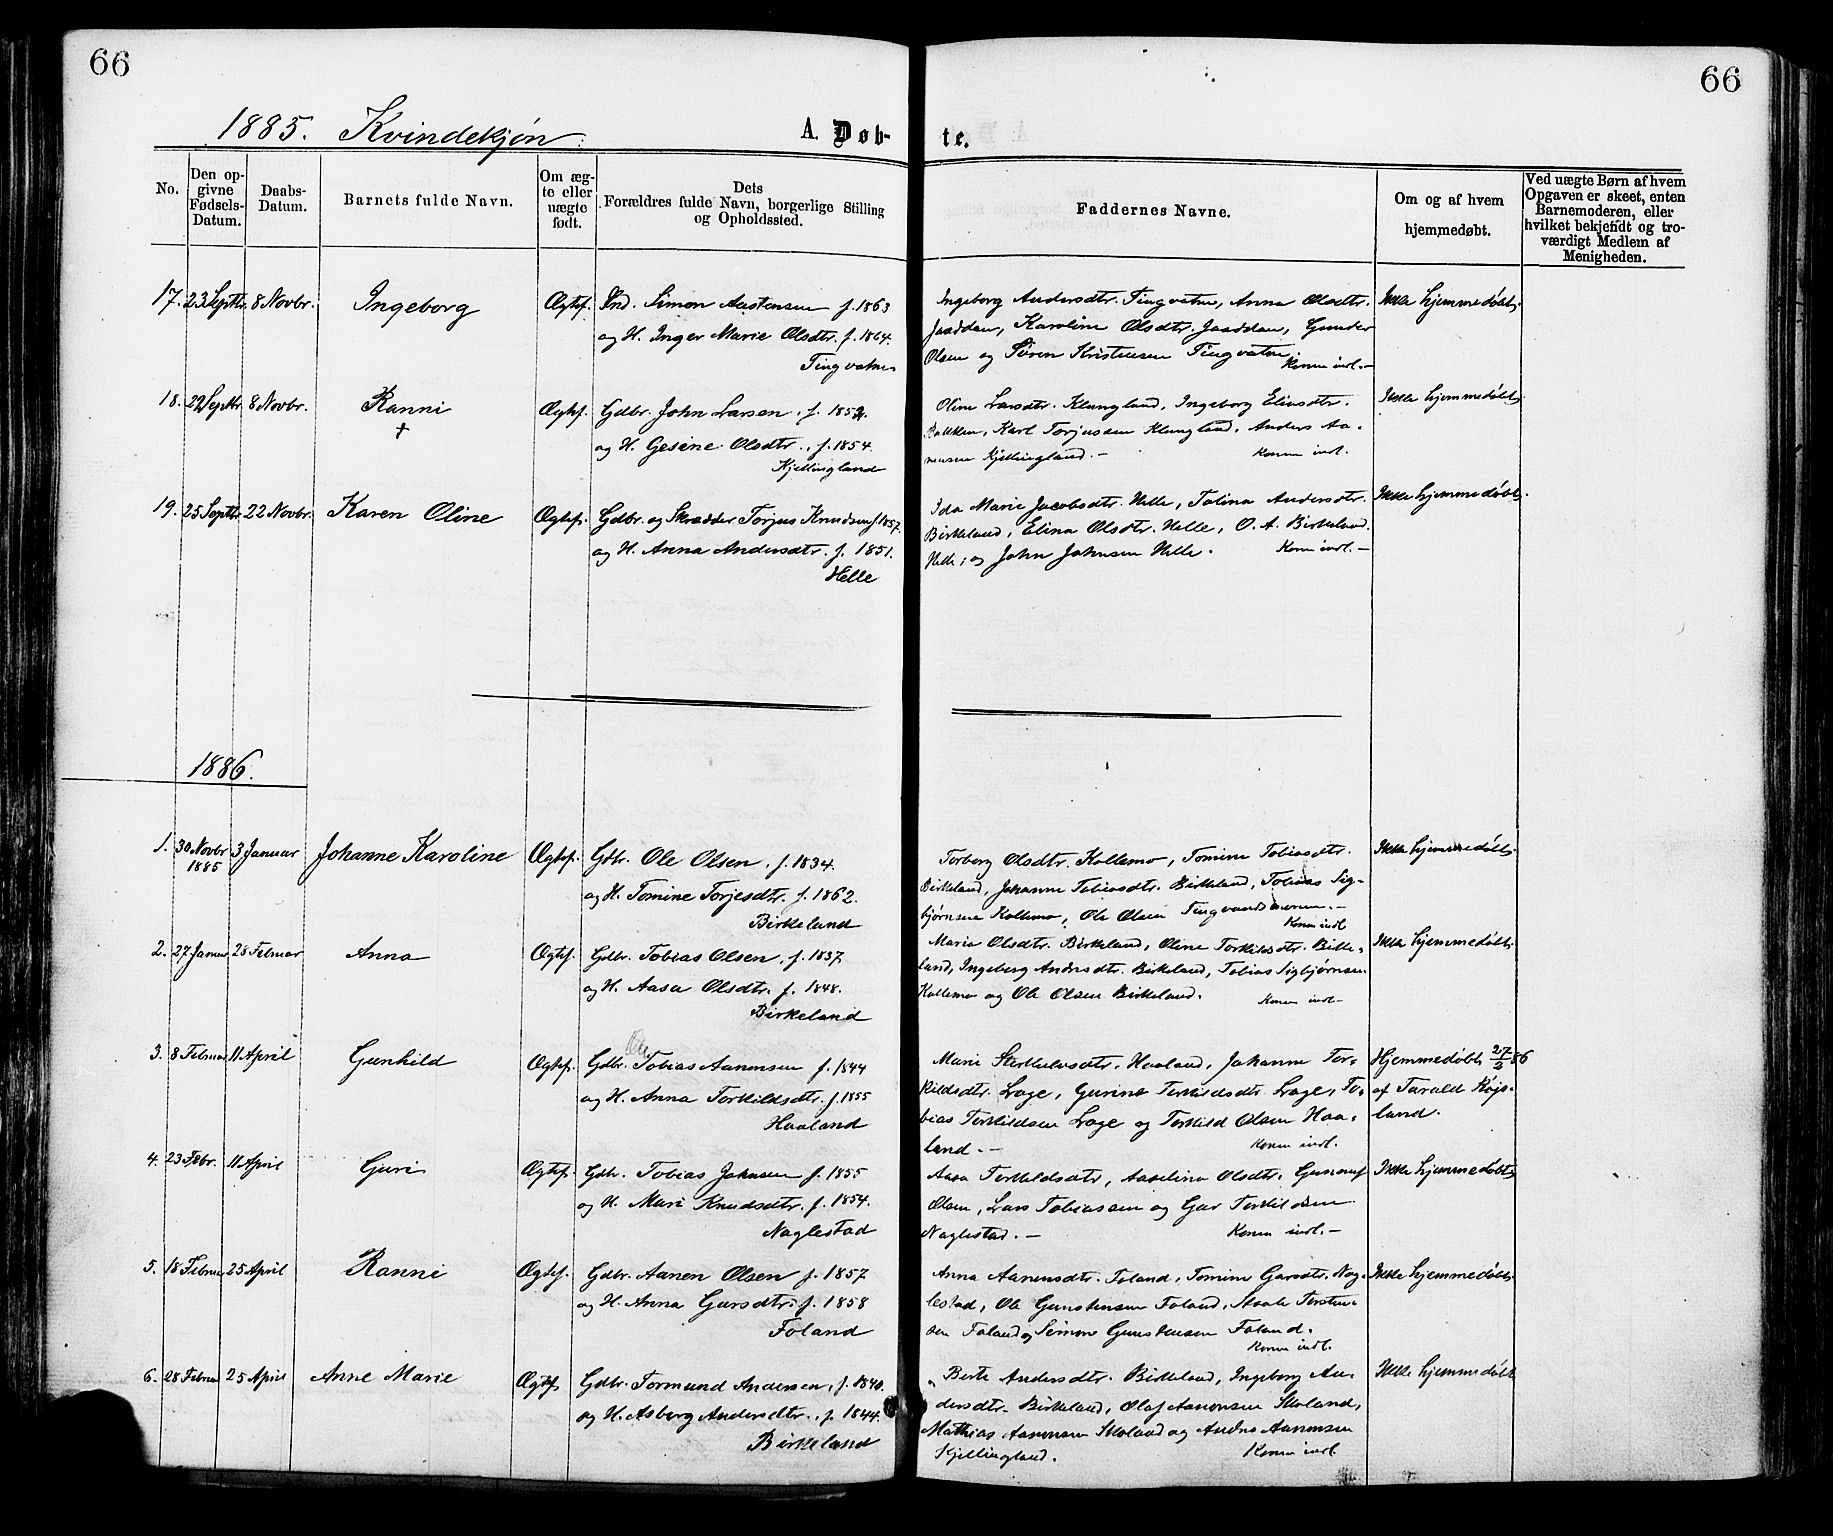 66
66
1885. Kvindekjøn.
A. Døb-
te.
No.
Den op-
givne
Fødsels-
Datum.
Daabs-
Datum.
Barnets fulde Navn.
Om æg-
te eller
uægte
født.
Dets
Forældres fulde Navn, borgerlige Stilling
og Opholdssted.
Faddernes Navne.
Om og af hvem
hjemmedøbt.
Ved uægte Børn af hvem
Opgaven er skeet, enten
Barnemoderen, eller
hvilket bekjendt og tro-
værdigt Medlem af
Menigheden.
17. 23 Septbr. 8 Novbr. Ingeborg Ægtef. Ind. Simon Aastensen f. 1863
og H. Inger Marie Olsdtr. f. 1864.
Tingvatne
Ingeborg Andersdtr. Tingvatne, Anna Olsdtr.
Jaaddan, Karoline Olsdtr. Jaaddan, Gunder
Olsen og Sören Kristensen Tingvatne.
Konen indl. —
Ikke hjemmedøbt.
18. 22 Septbr. 8 Novbr. Ranni Ægtef. Gdbr. John Larsen, f. 1852.
†
og H. Gesine Olsdtr., f. 1854.
Kjellingland
Oline Larsdtr. Klungland, Ingeborg Eliasdtr.
Bakken, Karl Torjussen Klungland, Anders Aa-
nensen Kjellingland. —
Konen indl.
Ikke hjemmedøbt.
19. 25 Septbr. 22 Novbr. Karen Oline Ægtef. Gdbr. og Skrædder Torjus Knudsen f. 1857.
og H. Anna Andersdtr. f. 1851.
Helle
Ida Marie Jacobsdtr. Helle, Talina Andersdtr.
Birkeland, Elina Olsdtr. Helle, O. A. Birkeland.
Helle; og John Johnsen Helle.
Konen indl. —
Ikke hjemmedøbt.
1886.
1. 30 Novbr 3 Januar Johanne Karoline Ægtef. Gdbr. Ole Olsen, f. 1834.
1885
og H. Tomine Torjesdtr. f. 1862.
Birkeland
Torborg Olsdtr. Kollemo, Tomine Tobiasdtr.
Birkeland, Johanne Tobiasdtr. Birkeland, Tobias Sig-
bjørnsen Kollemo, Ole Olsen Tingvandsmoen. —
Konen indl
Ikke hjemmedøbt.
2. 27 Januar 28 Februar Anna Ægtef. Gdbr. Tobias Olsen, f. 1837
og H. Aasa Olsdtr. f. 1848.
Birkeland
Maria Olsdtr. Birkeland, Oline Torkildsdtr. Birke-
land, Ingeborg Andersdtr. Birkeland, Tobias Sigbjørnsen
Kollemo og Ole Olsen Birkeland.
Konen indl —
Ikke hjemmedøbt.
3. 8 Februar 11 April Gunhild Ægtef. Gdbr. Tobias Aanensen f. 1844
og H. Anna Torkildsdtr. f. 1855
Haaland
Marie Haaland, Johanne Tor-
kildsdtr. Loge, Gurine Torkildsdtr. Loge, To-
bias Torkildsen Loge og Torkild Olsen Haa-
land. —
Konen indl.
Hjemmedøbt 27/2 86
af Tarald Røjs-
land.
4. 23 Febr. 11 April Guri Ægtef. Gdbr. Tobias Johnsen f. 1855
og H. Mari Knudsdtr. f. 1854.
Naglestad
Aasa Torkildsdtr, Aaselina Olsdtr. Gunnuf
Olsen, Lars Tobiassen og Gar Torkildsen
Naglestad. —
Konen indl. —
Ikke hjemmedøbt.
5. 18 Februar 25 April Ranni Ægtef. Gdbr. Aanen Olsen f. 1857
og H. Anna Garsdtr. f. 1858
Foland
Anna Aanensdtr. Foland, Tomine Garsdtr. Nag-
lestad, Ole Gunstensen Foland, Staale Torsten-
sen Foland og Simon Gunstensen Foland.
Konen indl.
Ikke hjemmedøbt.
6. 28 Februar 25 April Anne Marie Ægtef Gdbr. Tormund Andersen, f. 1840.
og H. Asborg Andersdtr., f. 1844.
Birkeland
Berte Andersdtr. Birkeland, Ingeborg An-
dersdtr. Birkeland, Olaf Aanensen Skoland,
Mathias Aanensen Skoland og Anders Aanensen
Kjellingland.
Konen indl.
Ikke hjemmedøbt